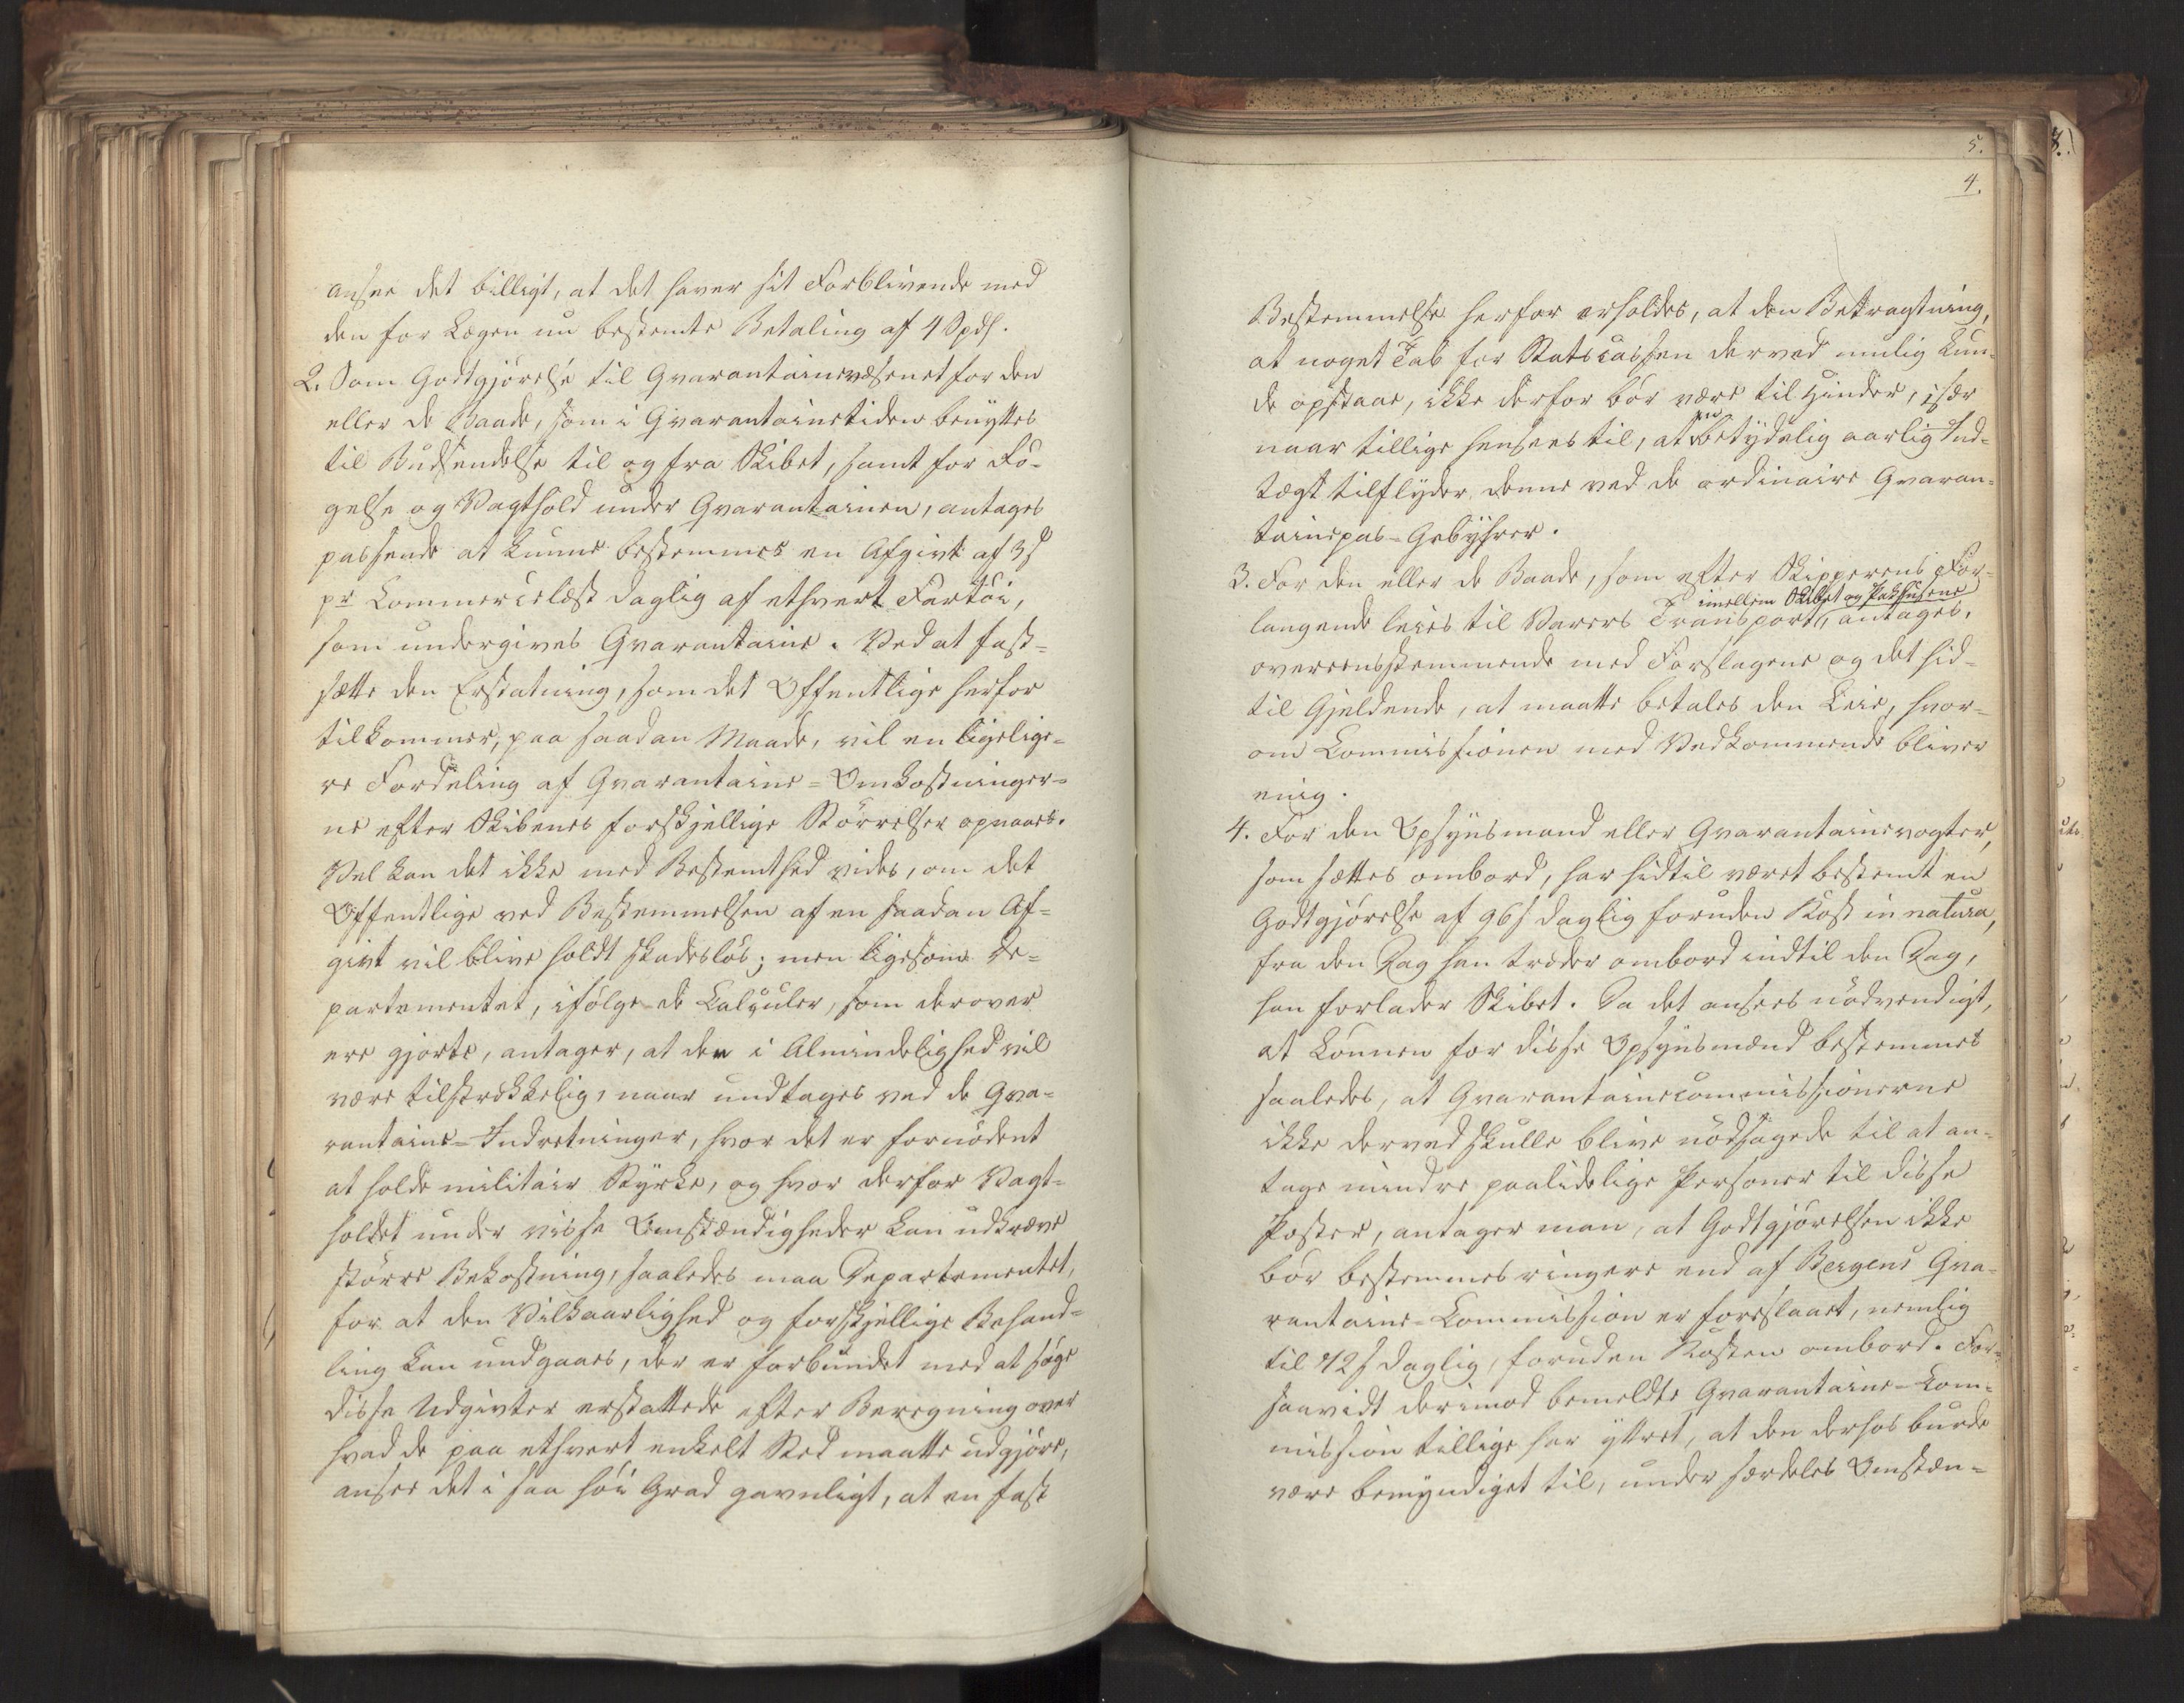 ansee det billigt, at det haver sit Forblivende med
den for Lægen nu bestemte Betaling af 4 Spdl.
2. Som Godtgjörelse til Qvarantainevæsenet for den
eller de Baade, som i Qvarantainetiden benyttes
til Budsendelse til og fra Skibet, samt for Rö-
gelse og Vagthold under Qvarantainen, antages
passende at kunne bestemmes en Afgivt af 3 s
pr Commercelæst daglig af ethvert Fartöi,
som undergives Qvarantaine. Ved at fast-
sætte den Erstatning, som det Offentlige herfor
tilkommer, paa saadan Maade, vil en ligelige-
re Fordeling af Qvarantaine-Omkostninger-
ne efter Skibenes forskjellige Störrelser opnaaes.
Vel kan det ikke med Bestemthed vides, om det
Offentlige ved Bestemmelsen af en saadan Af-
givt vil blive holdt skadeslös; men ligesom De-
partementet, ifölge de Calculer, som derover
ere gjorte, antager, at den i Almindelighed vil
være tilstrækkelig, naar undtages ved de Qva-
rantaine-Indretninger, hvor det er fornödent
at holde militair Styrke, og hvor derfor Vagt-
holdet under visse Omstændigheder kan udkræve
större Bekostning, saaledes maa Departementet,
for at den Vilkaarlighed og forskjellige Behand-
ling kan undgaaes, der er forbundet med at söge
disse Udgivter erstattede efter Beregning over
hvad de paa ethvert enkelt Sted maatte udgjöre,
ansee det i saa höi Grad gavnligt, at en fast
5.
4.
Bestemmelse herfor erholdes, at den Betragtning,
at noget Tab for Statscassen derved mulig kun-
de opstaae, ikke derfor bör være til Hinder, især
naar tillige hensees til, at en betydelig aarlig Ind-
tægt tilflyder denne ved de ordinaire Qvaran-
tainepas-Gebyhrer.
3. For den eller de Baade, som efter Skipperens For-
langende leies til Varers Transport imellem Skibet og Pakhusene, antages,
overeensstemmende med Forslagene og det hid-
til Gjeldende, at maatte betales den Leie, hvor-
om Commissionen med Vedkommende bliver
enig.
4. For den Opsynsmand eller Qvarantainevogter,
som sættes ombord, har hidtil været bestemt en
Godtgjörelse af 96 s daglig foruden Kost in natura,
fra den Dag han træder ombord indtil den Dag,
han forlader Skibet. Da det ansees nödvendigt,
at Lönnen for disse Opsynsmænd bestemmes
saaledes, at Qvarantainecommissionerne
ikke derved skulle blive nödsagede til at an-
tage mindre paalidelige Personer til disse
Poster, antager man, at Godtgjörelsen ikke
bör bestemmes ringere end af Bergens Qva-
rantaine-Commission er foreslaaet, nemlig
til 72 s daglig, foruden Kosten ombord. For-
saavidt derimod bemeldte Qvarantaine-Com-
mission tillige har yttret, at den derhos burde
være bemyndiget til, under særdeles Omstæn-